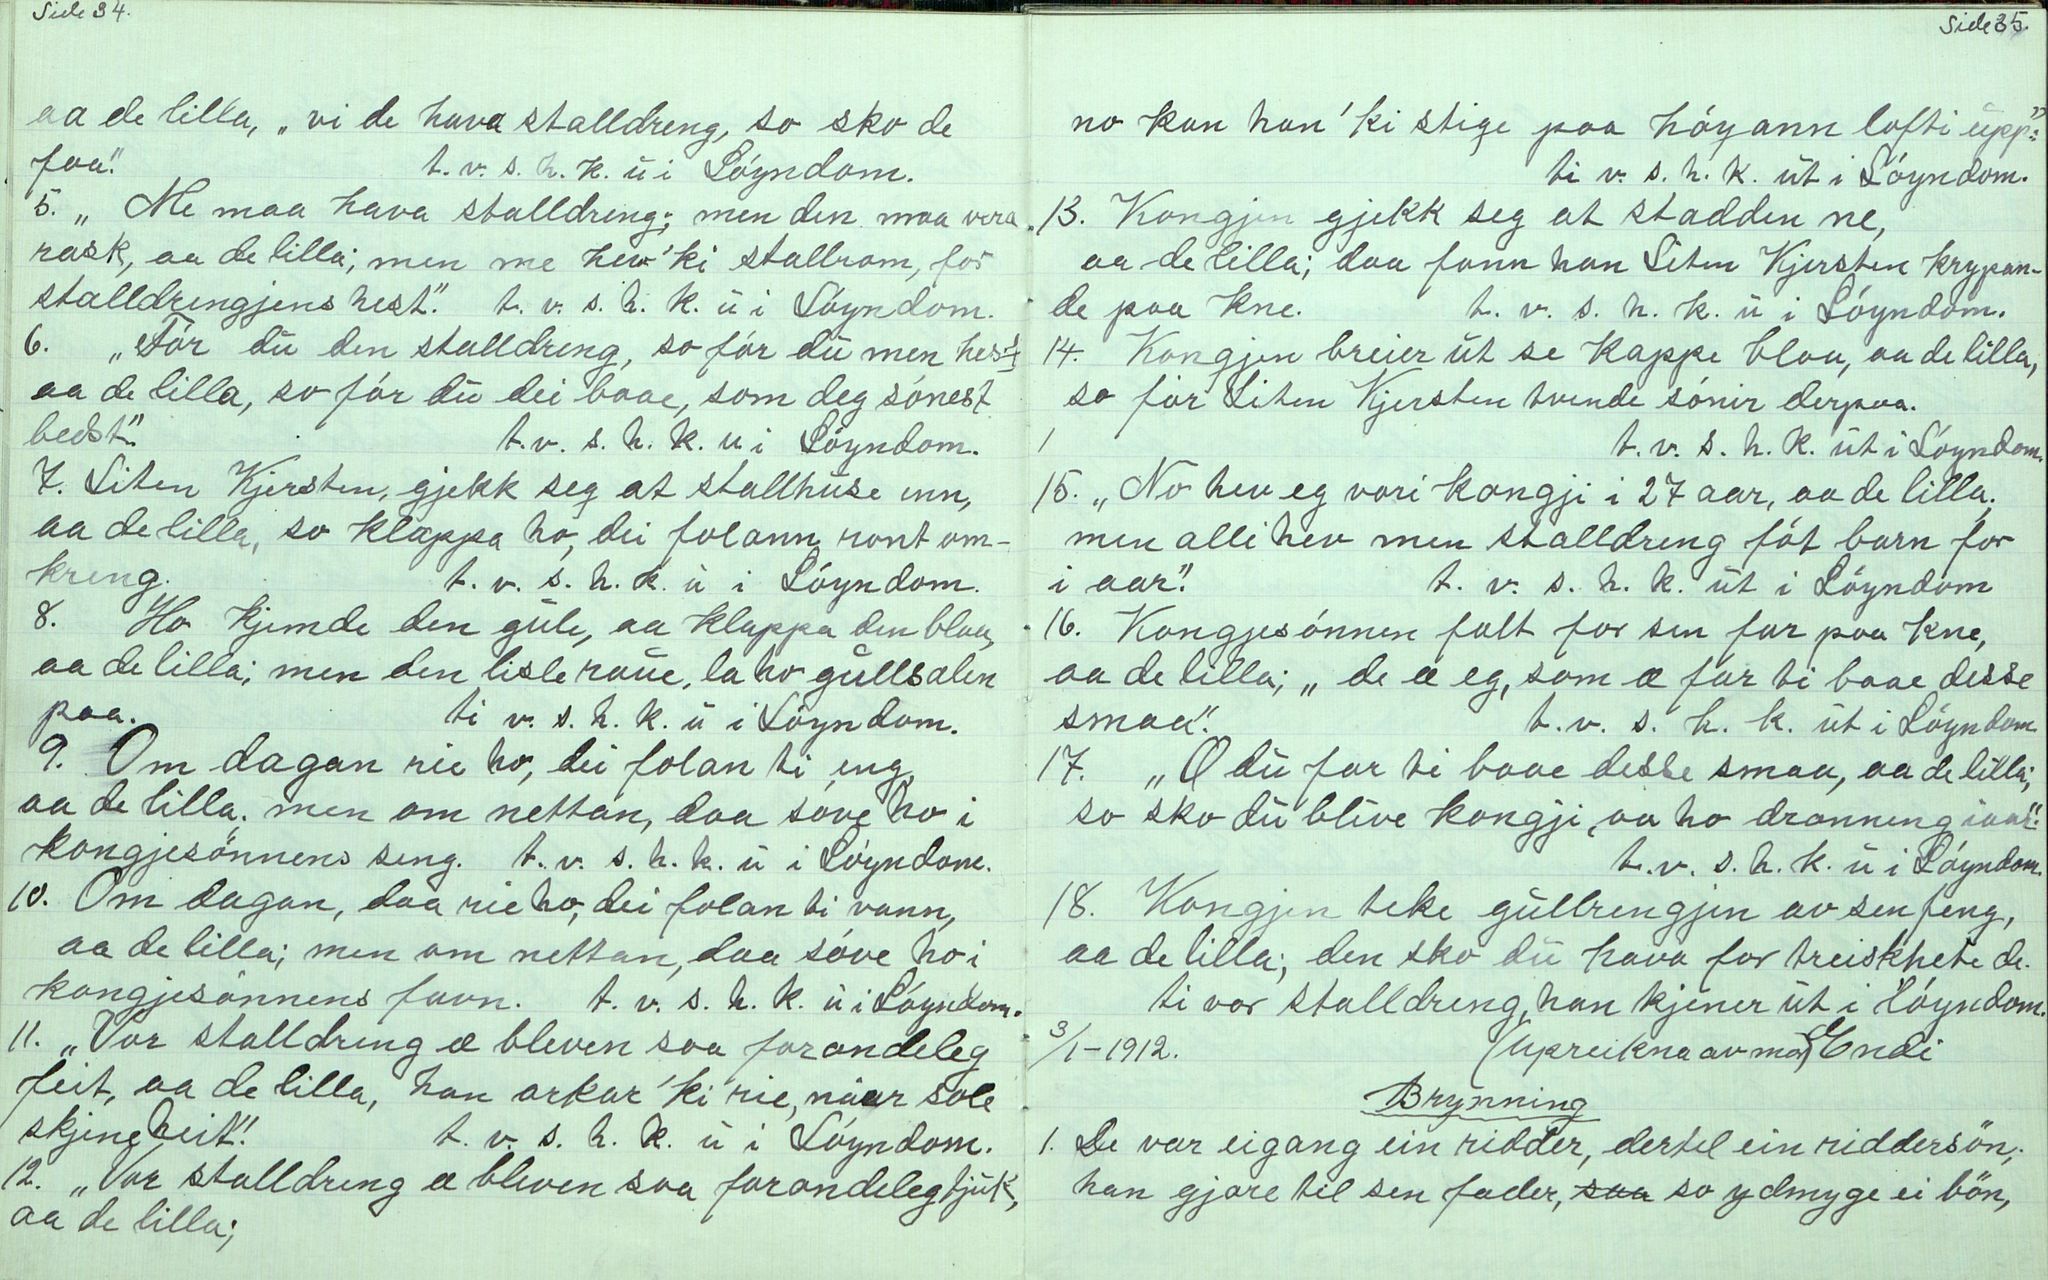 Side 34.
aa de lilla, „vi de hava stalldreng, so sko de
faa". t. v. s. h. k. ū i Löyndom.
5. „Me maa hava stalldreng; men den maa vera
rask, aa de lilla; men me hev'ki stallrom, for
stalldrengjens hest". t. v. s. h. k. ū i Löyndom.
6. „Før dū den stalldreng, so før dū men hest
aa de lilla, so før dū dei baae, som deg sónest
bedst". t. v. s. h. k. u i Löyndom.
7. Liten Kjersten, gjekk seg at stallhūse inn,
aa de lilla, so klappa ho, dei folann ront om-
kreng. t. v. s. h. k. ū i Löyndom.
8. Ho kjemde den gūle, aa klappa den blaa,
aa de lilla; men den lisle raūe, la ho gūllsalen
paa. ti v. s. h. k. ū i Löyndom.
9. Om dagan rie ho, dei folan ti eng,
aa de lilla. men om nettan, daa sóve ho i
kongjesönnens seng. t. v. s. h. k. ū i Löyndom.
10. Om dagan, daa rie ho, dei folan ti vann,
aa de lilla; men om nettan, daa sóve ho i
kongjesónnens favn. t. v. s. h. k. ū i Löyndom.
11. „Vor stalldreng æ bleven saa forandeleg
feit, aa de lilla, han orkar'ki rie, naar sole
skjine heit"! t. v. s. h. k. ū i Löyndom.
12. „Vor stalldreng æ bleven saa forandeleg tjūk,
aa de lilla;
Side 35.
no kan han'ki stige paa höyann lofti ūpp"
ti v. s. h. k. ūt i Löyndom.
13. Kongjen gjekk seg at stadden ne,
aa de lilla; daa fann han Liten Kjersten krypan-
de paa kne. t. v. s. h. k. ū i Löyndom.
14. Kongjen breier ūt se kappe blaa, aa de lilla,
so før Liten Kjersten tvende sónir derpaa.
t. v. s. h. k. ūt i Löyndom.
15. „No hev eg vori kongji i 27 aar, aa de lilla;
men alli hev men stalldreng föt barn for
i aar". t. v. s. h. k. ūt i Löyndom
16. Kongjesónnen falt for sen far paa kne,
aa de lilla; „de æ eg, som æ far ti baae desse
smaa". t. v. s. h. k. ūt i Löyndom.
17. „Æ dū far ti baae desse smaa, aa de lilla;
so sko dū blive kongji, aa ho dronning iaar".
t. v. s. h. k. ū i Löyndom.
18. Kongjen teke gūllrengjen av sen feng,
aa de lilla; den sko dū hava for treiskhete de.
ti vor stalldreng, han kjener ūt i löyndom.
3/1-1912. (Upreikna av mor) Endi
Brynning
1. De var eigang ein ridder, dertel ein riddersön;
han gjore til sen fader, saa so ydmyge ei bön,